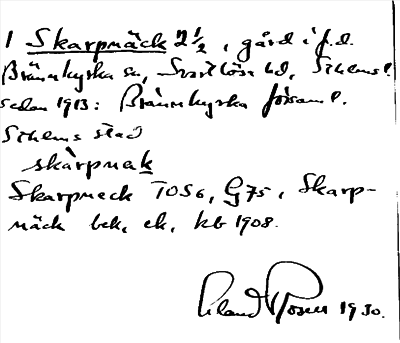 1 Skarpnäck 2 1/2, gård i f.d.
Brännkyrka sn, Svartlösa hd, Sthems l.
sedan 1913: Brännkyrka församl.
Sthems stad
skàrpnak
Skarpneck TOS6, G75, Skarp-
näck bek, ek, kb 1908.
Roser 1930.